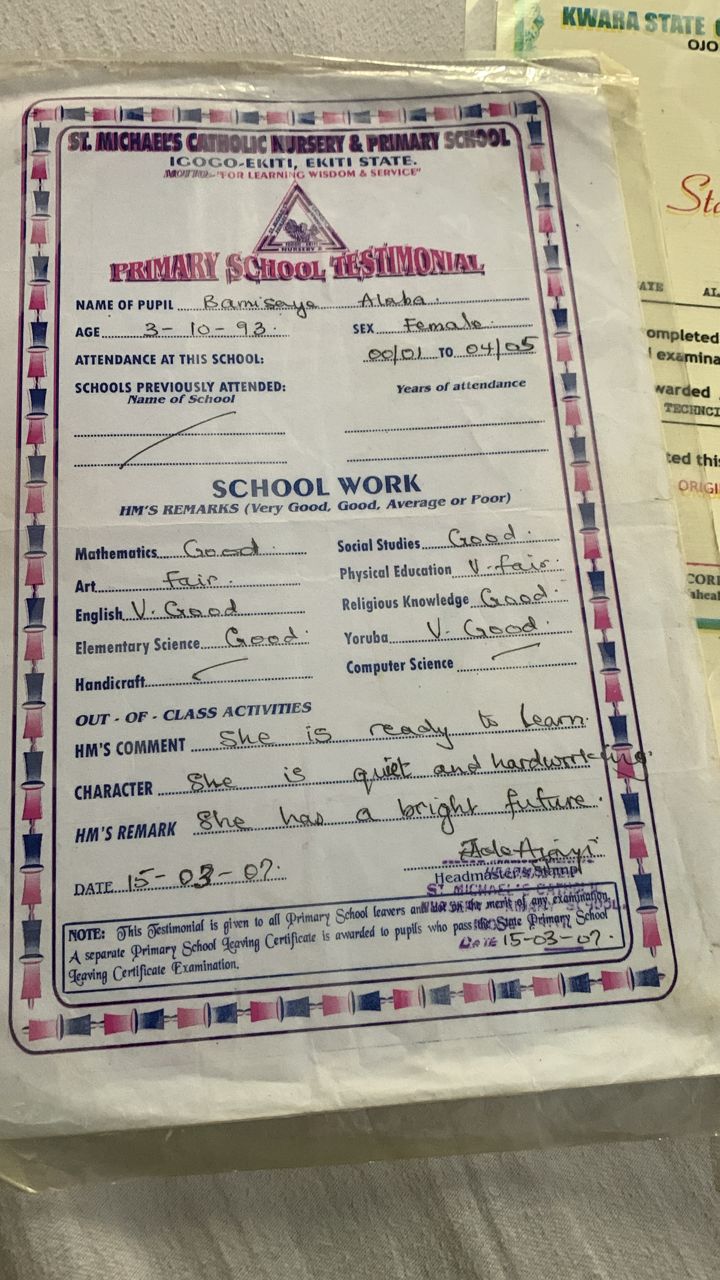 KWARA STATE
OJO
ST. MICHAEL'S CATHOLIC NURSERY & PRIMARY SCHOOL
IGOGO-EKITI, EKITI STATE.
MOTTO:-"FOR LEARNING WISDOM & SERVICE"
PRIMARY SCHOOL TESTIMONIAL
NAME OF PUPIL Bamisaye Alaba.
AGE 3-10-93. SEX Female.
ATTENDANCE AT THIS SCHOOL: 00/01 TO 04/05
SCHOOLS PREVIOUSLY ATTENDED: Years of attendance
Name of School
SCHOOL WORK
HM'S REMARKS (Very Good, Good, Average or Poor)
Mathematics Good. Social Studies Good.
Art fair. Physical Education V. fair.
English V. Good Religious Knowledge Good.
Elementary Science Good. Yoruba V. Good.
Handicraft Computer Science
OUT - OF - CLASS ACTIVITIES
HM'S COMMENT She is ready to learn.
CHARACTER She is quiet and hardworking.
HM'S REMARK She has a bright future.
DATE 15-03-07. Headmaster's
ST. MICHAEL'S CATHOLIC
DATE 15-03-07.
NOTE: This Testimonial is given to all Primary School leavers and not on the merit of any examination.
A separate Primary School Leaving Certificate is awarded to pupils who pass the State Primary School
Leaving Certificate Examination.
Sta
ATE AL
ompleted
examina
warded
TECHNCI
ted this
ORIGI